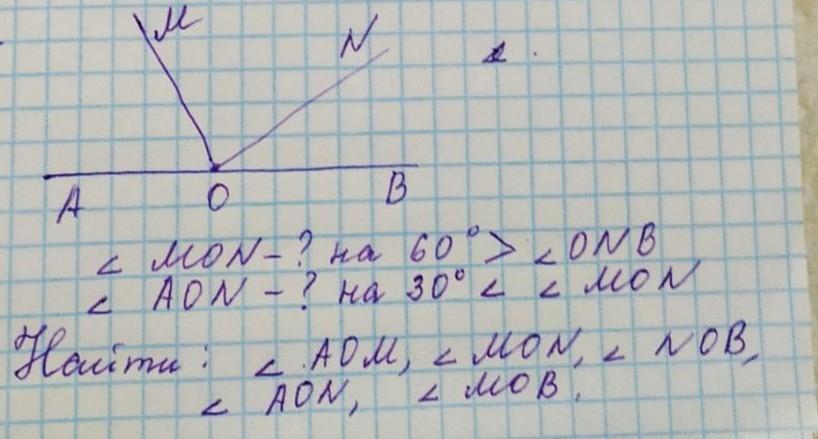 M
N
A O B
∠ MON – ? на 60° > ∠ ONB
∠ AON – ? на 30° < ∠ MON
Найти: ∠ AOM, ∠ MON, ∠ NOB,
∠ AON, ∠ MOB.